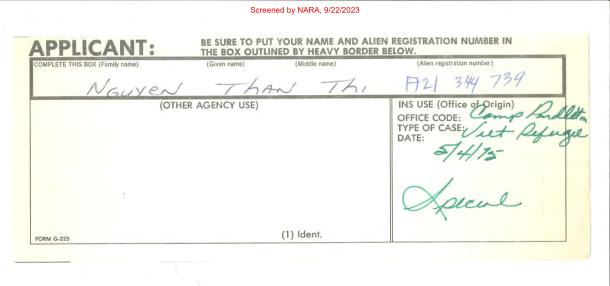 Screened by NARA, 9/22/2023
APPLICANT: BE SURE TO PUT YOUR NAME AND ALIEN REGISTRATION NUMBER IN
THE BOX OUTLINED BY HEAVY BORDER BELOW.
COMPLETE THIS BOX (Family name) (Given name) (Middle name) (Alien registration number)
NGUYEN THAN THI A21 344 739
(OTHER AGENCY USE)
INS USE (Office of Origin)
OFFICE CODE: Camp Pendleton
TYPE OF CASE: Viet Refugee
DATE:
5/4/75
Special
FORM G-325
(1) Ident.